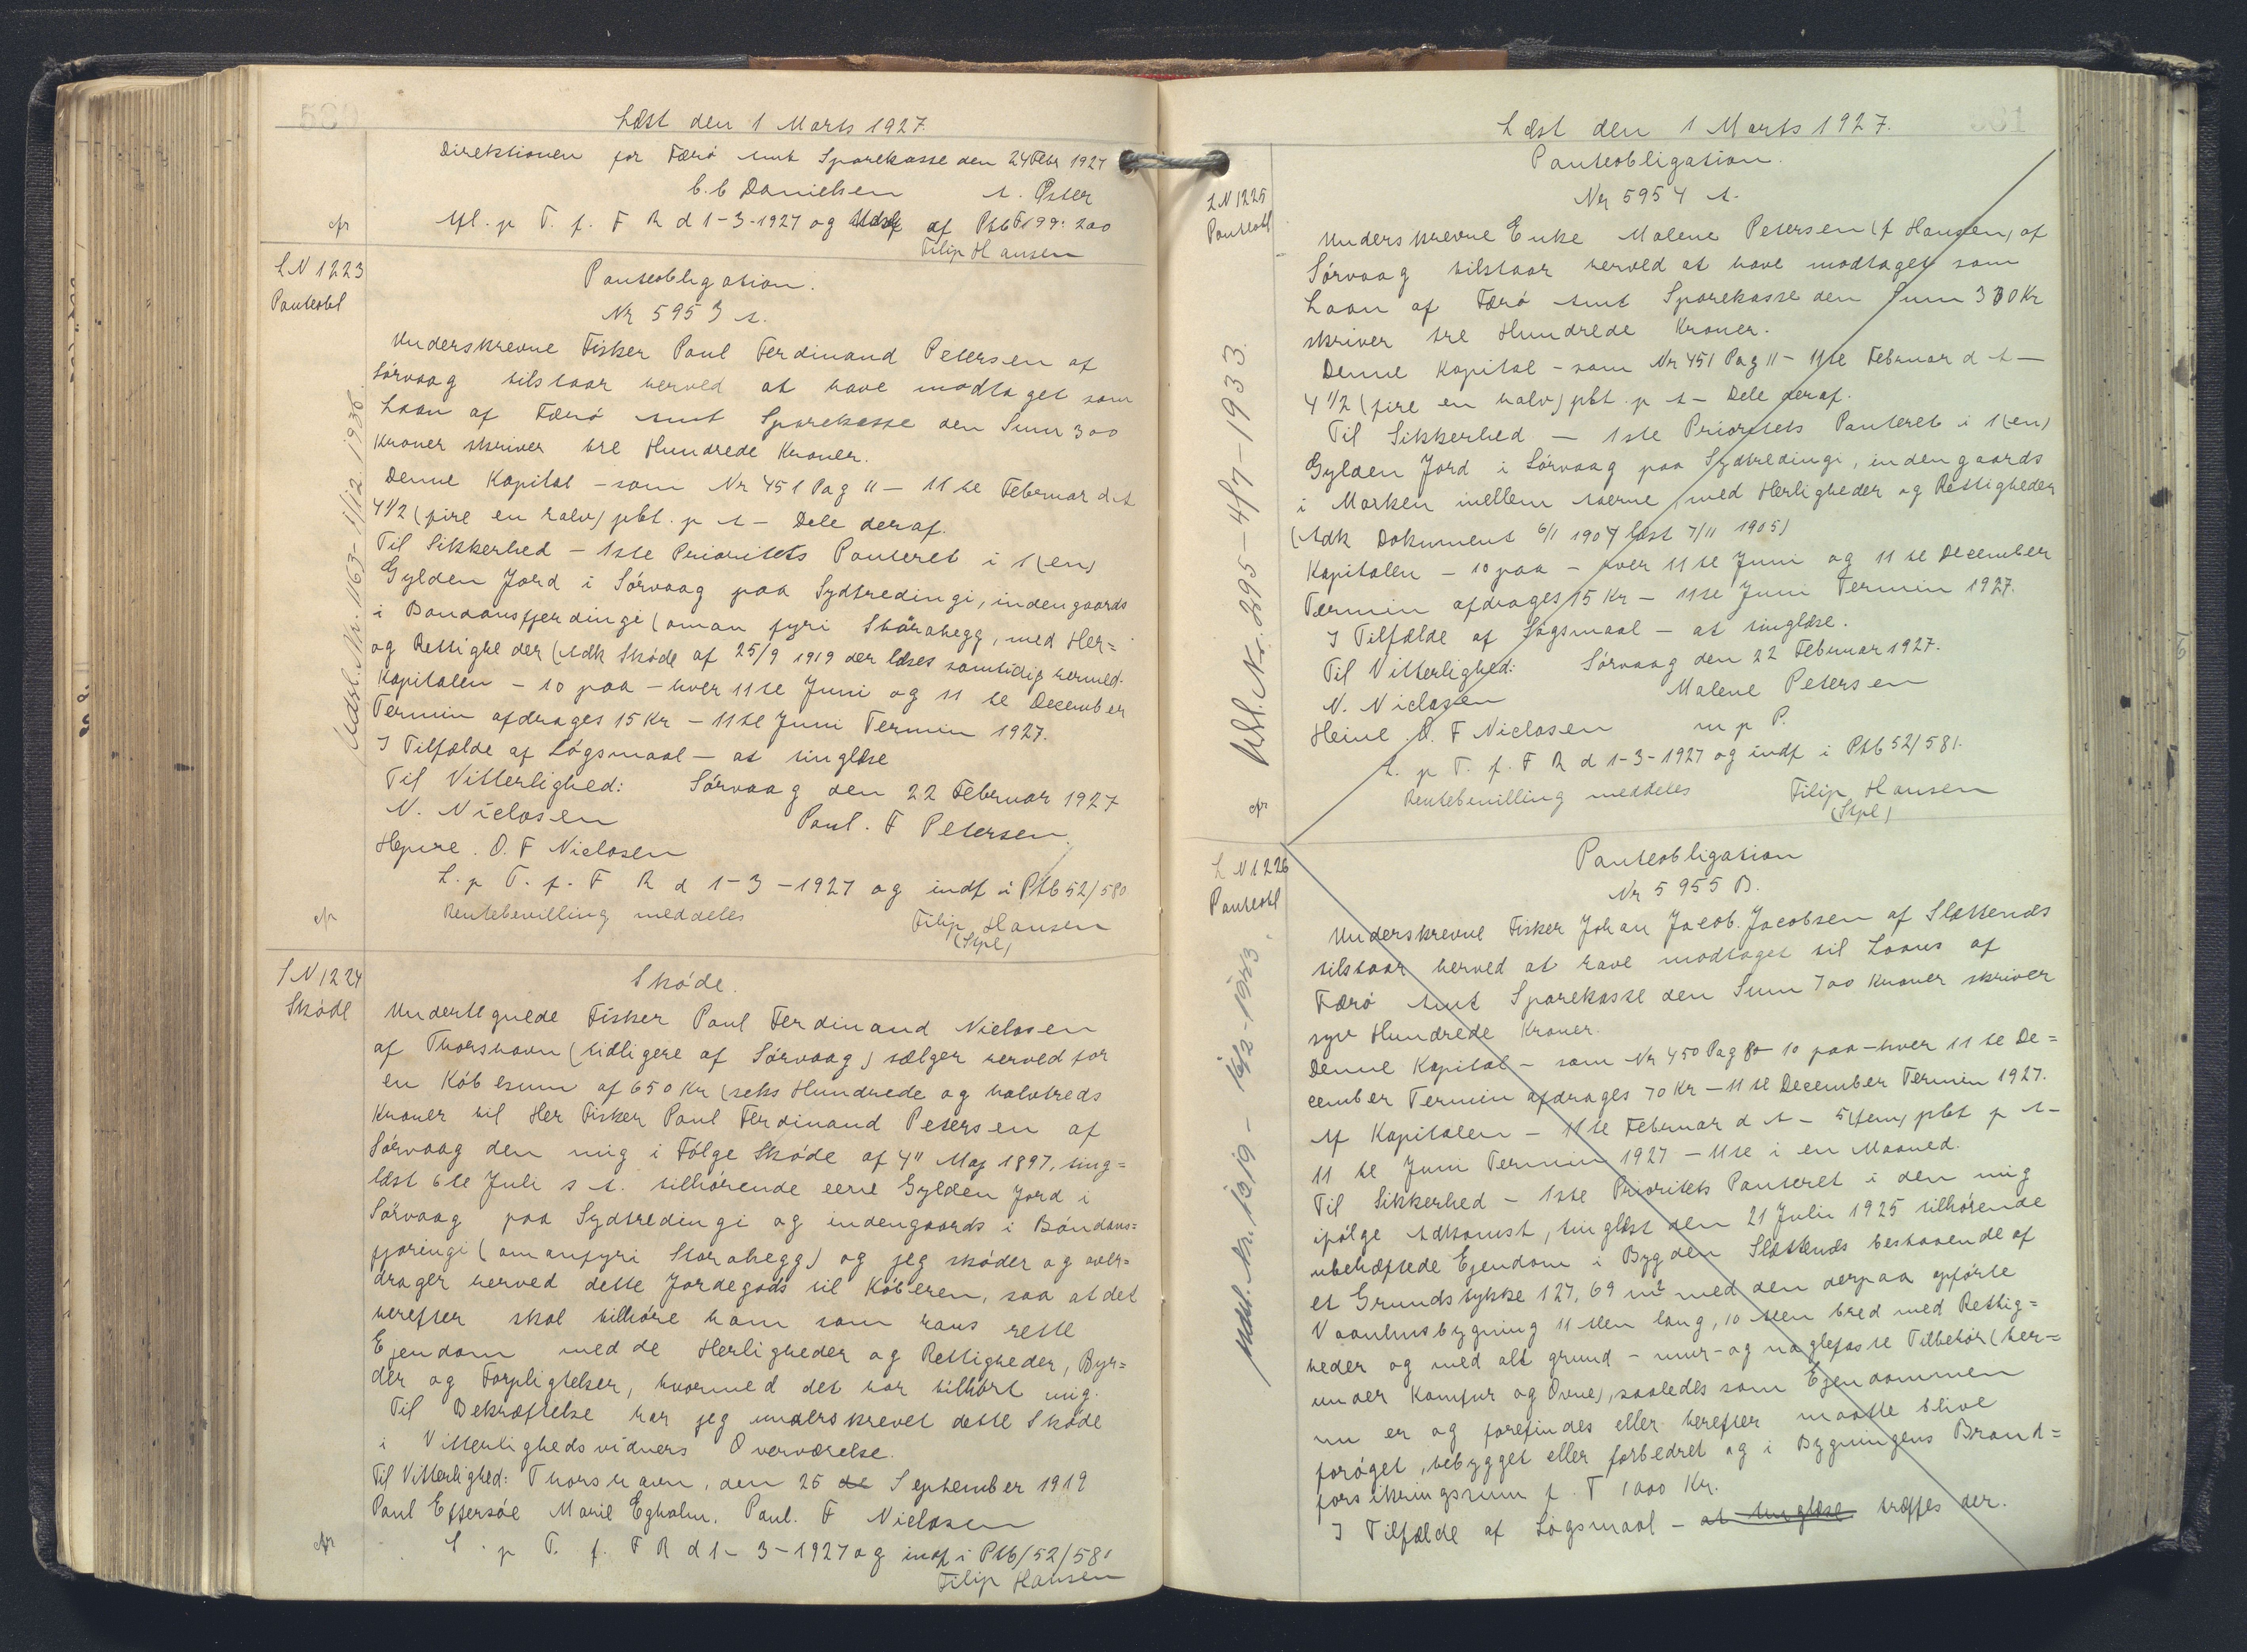 580
Læst den 1 Marts 1927.
Direktionen for Færø Amt Sparekasse den 24 Febr 1927
C. C Danielsen A. Øster
Afl. p T. f. F R d 1-3-1927 og Udsl af Ptb F 199: 200
cfr
Filip Hansen
LN 1223
Panteobl
Panteobligation.
Nr 5953 A.
Underskrevne Fisker Poul Ferdinand Petersen af
Sórvaag tilstaar herved at have modtaget som
Laan af Færó Amt Sparekasse den Sum 300
Kroner skriver tre Hundrede Kroner.
Denne Kapital - som Nr 451 Pag 11 - 11 te Februar d. A
4 1/2 (fire en halv) pCt. p A - Dele deraf.
Til Sikkerhed - 1ste Prioritets Panteret i 1 (en)
Gylden Jord i Sórvaag paa Sydtredingi, indengaards
i Bondansfjerdingi (oman fyri Stórahegg, med Her=
og Rettigheder (Adk Skóde af 25/9 1919 der læses samtidig hermed.
Kapitalen - 10 paa - hver 11 te Juni og 11 te December
Termin afdrages 15 Kr - 11te Juni Termin 1927.
I Tilfælde af Lógsmaal - at tinglæse
Til Vitterlighed: Sórvaag den 22 Februar 1927
N. Niclasen Poul. F Petersen.
Heine. O. F Niclasen
L. p T. f. F R d 1-3-1927 og indf i Ptb 52/580
Rentebevilling meddeles Filip Hansen
cfr
(Stpl)
Udsl. Nr. 1163 - 1/12. 1936.
LN 1224
Skóde
Skóde.
Undertegnede Fisker Poul Ferdinand Niclasen
af Thorshavn (tidligere af Sórvaag) sælger herved for
en Kóbesum af 650 Kr (seks Hundrede og halvtreds
Kroner til Her Fisker Poul Ferdinand Petersen af
Sórvaag den mig i Fólge Skóde af 4" Maj 1897, ting=
læst 6te Juli s A. tilhórende eene Gylden Jord i
Sórvaag paa Sydtredingi og indengaards i Bóndans=
fjóringi (omanfyri Storahegg) og jeg skóder og over=
drager herved dette Jordegods til Kóberen, saa at det
herefter skal tilhóre ham som hans rette
Ejendom med de Herligheder og Rettigheder, Byr=
der og Forpligtelser, hvormed det har tilhórt mig.
Til Bekræftelse har jeg underskrevet dette Skóde
i Vitterlighedsvidners Overværelse.
Til Vitterlighed: Thorshavn, den 25 de September 1919
Poul Effersóe Marie Egholm. Poul. F Niclasen
L. p T. f. F R d 1-3-1927 og indf i Ptb/52/581
cfr
Filip Hansen
581
Læst den 1 Marts 1927.
LN 1225
Panteobl
Panteobligation.
Nr 5954 A.
Underskrevne Enke Malene Petersen (f Hansen) af
Sórvaag tilstaar herved at have modtaget som
Laan af Færó Amt Sparekasse den Sum 300 Kr
skriver tre Hundrede Kroner.
Denne Kapital - som Nr 451 Pag 11 - 11te Februar d A -
4 1/2 (fire en halv) pCt. p A - Dele deraf.
Til Sikkerhed - 1ste Prioritets Panteret i 1 (en)
Gylden Jord i Sórvaag paa Sydtredingi, indengaards
i Marken mellem Aaerne med Herligheder og Rettigheder
(Adk Dokument 6/1 1904 læst 7/11 1905)
Kapitalen - 10 paa - hver 11te Juni og 11 te December
Termin afdrages 15 Kr - 11te Juni Termin 1927.
I Tilfælde af Sógsmaal - at tinglæse.
Til Vitterlighed: Sórvaag den 22 Februar 1927.
N. Niclasen Malene Petersen
Heine. O. F Niclasen m p P.
L. p T. f. F R d 1-3-1927 og indf i Ptb 52/581.
Rentebevilling meddeles Filip Hansen
cfr
(Stpl)
Udsl. Nr. 295 - 4/7 - 1933.
LN 1226
Panteobl
Panteobligation
Nr 5955 B.
Underskrevne Fisker Johan Jacob. Jacobsen af Slættenæs
tilstaar herved at have modtaget til Laans af
Færó Amt Sparekasse den Sum 700 Kroner skriver
syv Hundrede Kroner.
Denne Kapital - som Nr 450 Pag 80 - 10 paa - hver 11 te De=
cember Termin afdrages 70 Kr - 11 te December Termin 1927.
Af Kapitalen - 11te Februar d A - 5 (fem) pCt p A -
11 te Juni Termin 1927 - 11te i en Maaned.
Til Sikkerhed - 1ste Prioritets Panteret i den mig
ifólge Adkomst, tinglæst den 21 Julii 1925 tilhórende
ubehæftede Ejendom i Bygden Slættenæs bestaaende af
et Grundstykke 127,69 m2 med den derpaa opfórte
Vaanhusbygning 11 Alen lang, 10 Alen bred med Rettig=
heder og med alt grund- mur- og naglefaste Tilbehór (her=
under Komfur og Ovne), saaledes som Ejendommen
nu er og forefindes eller herefter maatte blive
foróget, bebygget eller forbedret og i Bygningens Brand=
forsikringssum f. T 1000 Kr.
I Tilfælde af Lógsmaal - at tinglæse træffes der.
Udsl. Nr. 1319 - 16/2 - 1943.